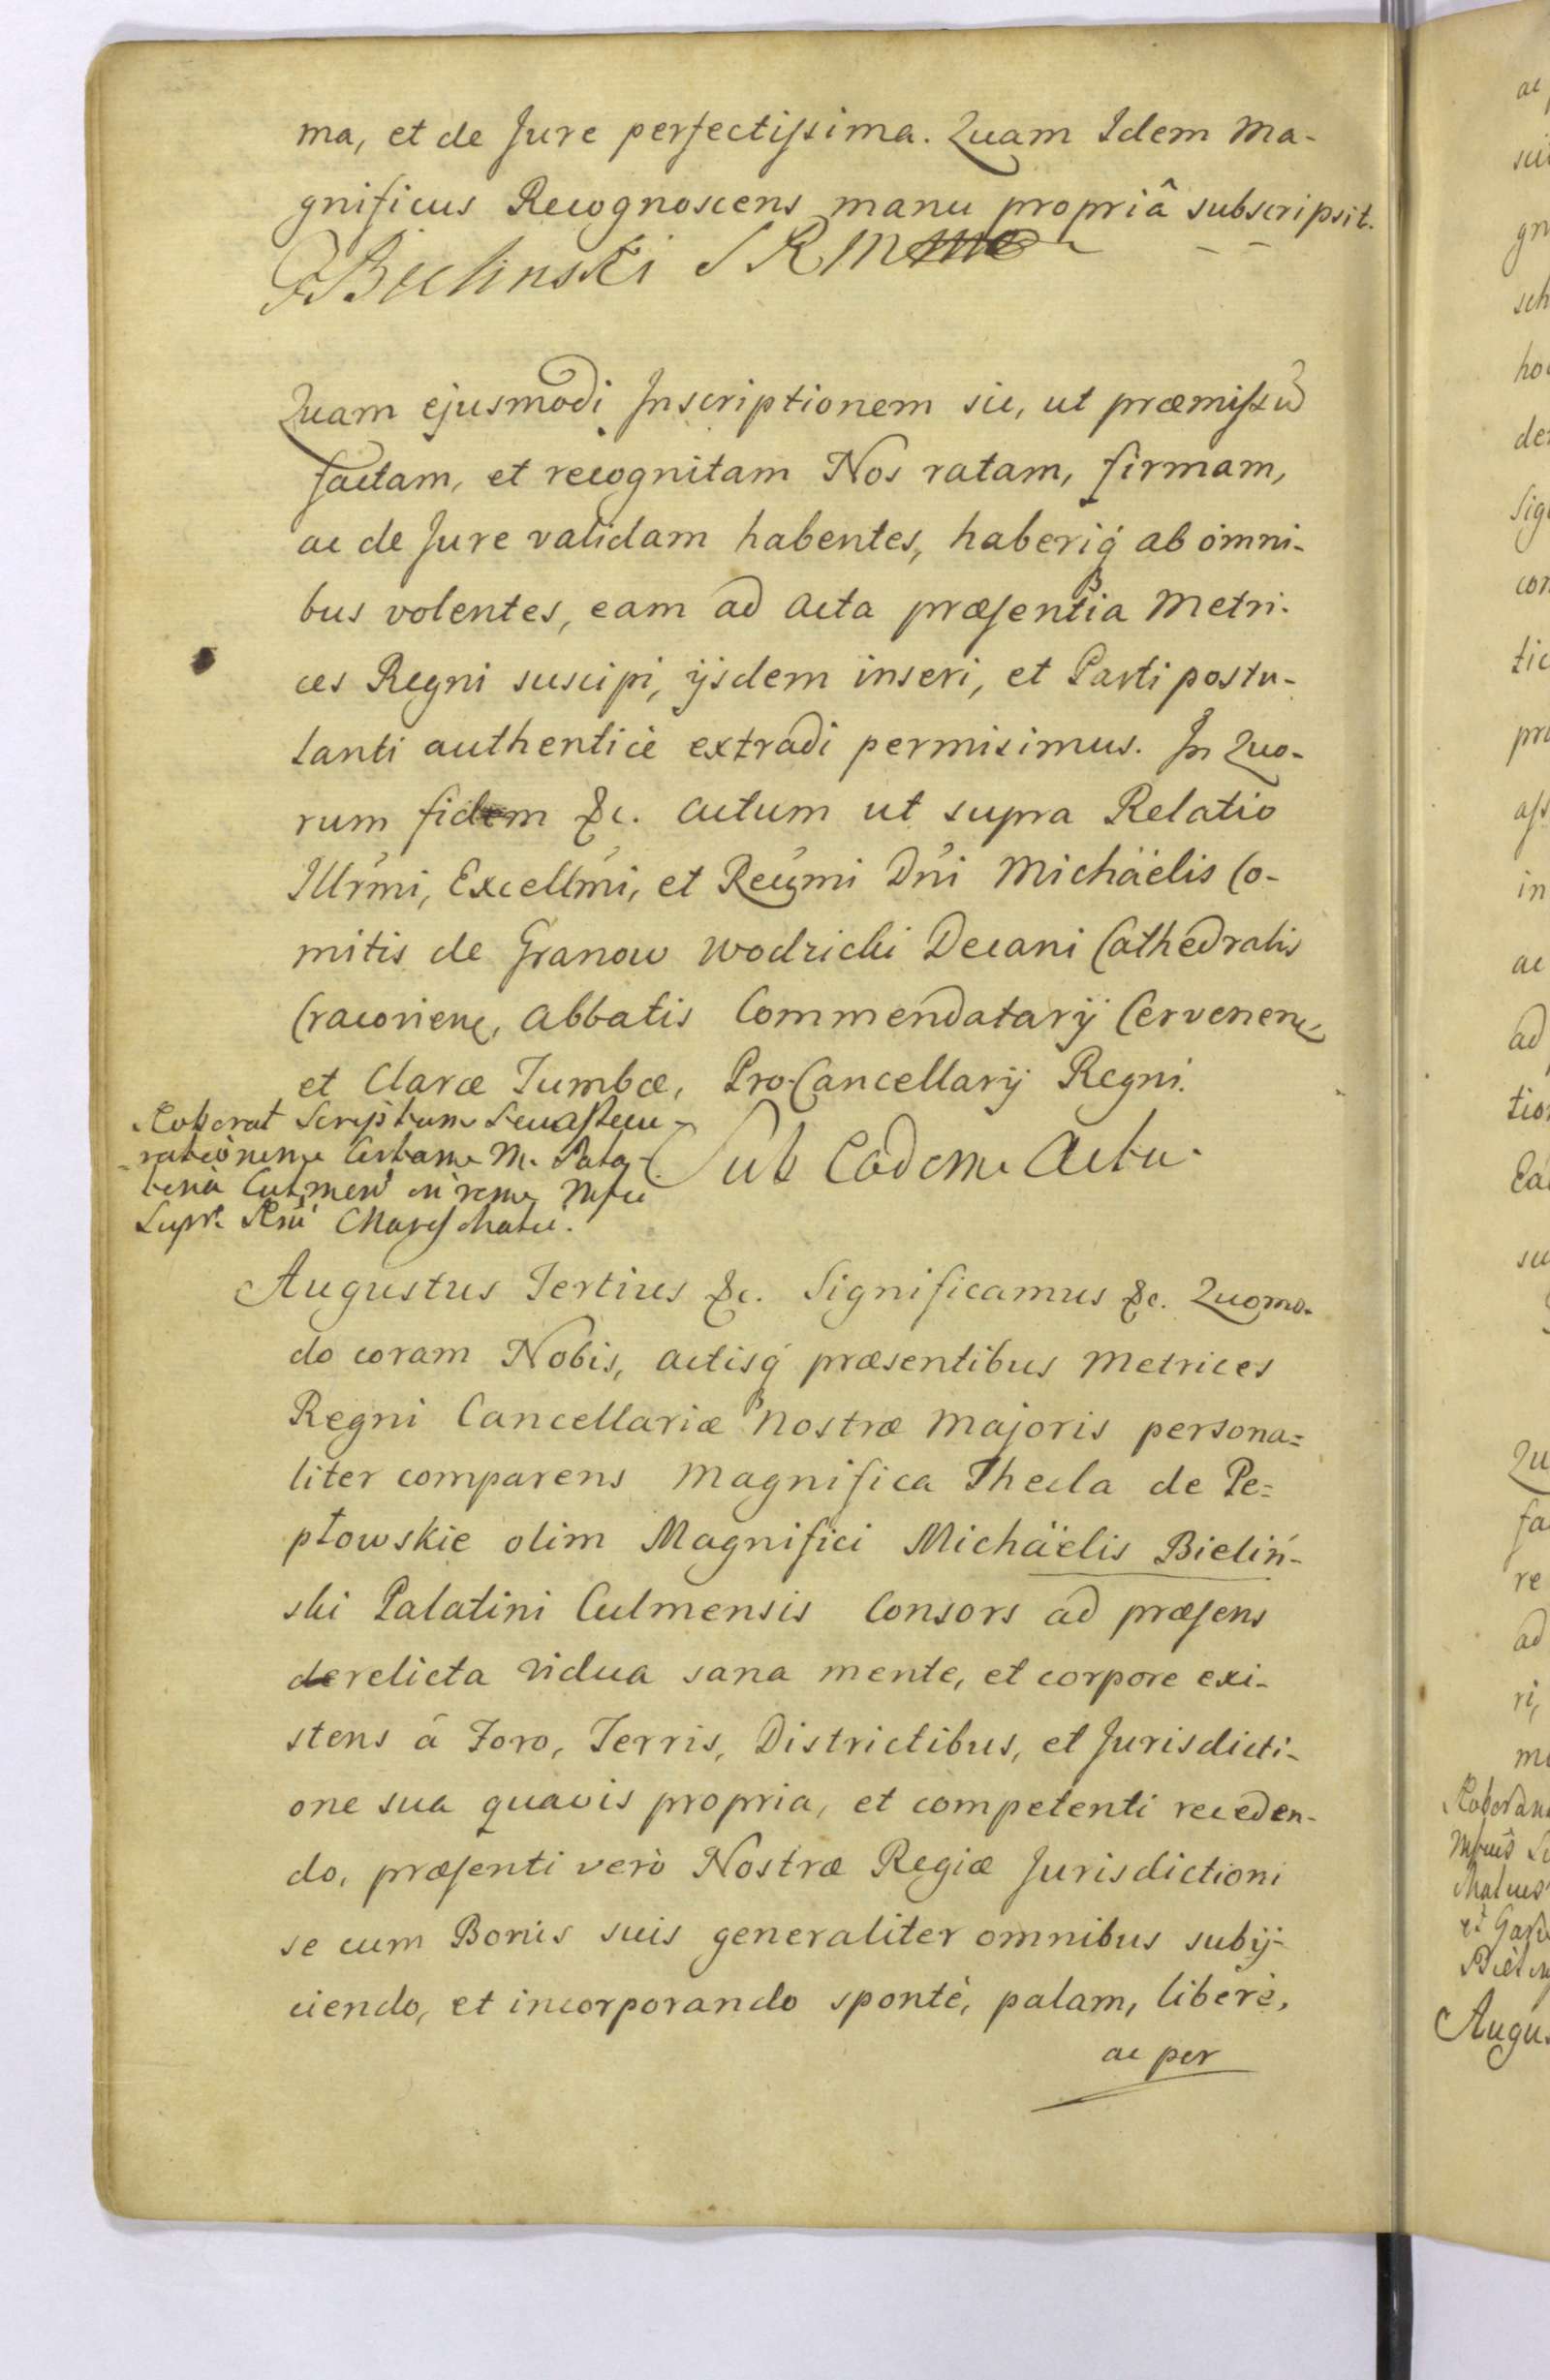 ma, et de Jure perfectissima. Quam Idem Ma-
gnificus Recognoscens manu propriâ subscripsit.
FBielinski S R M
Quam ejusmodi Inscriptionem sic, ut præmissũ
factam, et recognitam Nos ratam, firmam,
ac de Jure validam habentes, haberiq́ ab omni-
bus volentes, eam ad Acta præsentia Metri-
ces Regni suscipi, ijsdem inseri, et Parti postu-
lanti authenticè extradi permisimus. In Quo-
rum fidem &c. Actum ut supra Relatio
Illrmi, Excellmi, et Reũmi Dni Michäelis Co-
mitis de Granow Wodzicki Decani Cathedralis
Cracovien, Abbatis Commendatarij Cervenen,
et Claræ Tumbæ, Pro-Cancellarij Regni.
Roborat Scriptum
Sub Eadem Actu.
Augustus Tertius &c. Significamus &c. Quomo-
do coram Nobis, Actisq́ præsentibus Metrices
Regni Cancellariæ Nostræ Majoris persona=
liter comparens Magnifica Thecla de Pe=
płowskie olim Magnifici Michäelis Bieliń-
ski Palatini Culmensis Consors ad præsens
derelicta Vidua sana mente, et corpore exi-
stens â Foro, Terris, Districtibus, et Jurisdicti-
one sua quavis propria, et competenti receden-
do, præsenti verò Nostræ Regiæ Jurisdictioni
se cum Bonis suis generaliter omnibus subij-
ciendo, et incorporando spontè, palam, liberè,
ac per